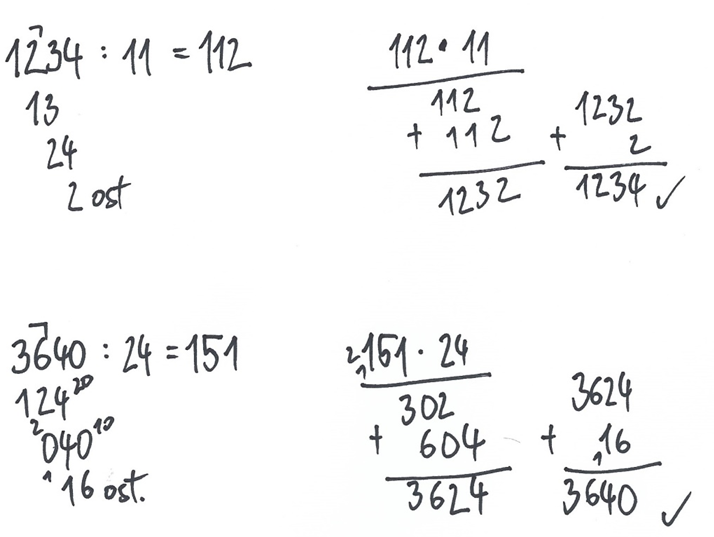 1234 : 11 = 112
13
24
2 ost
112 · 11
112
+ 112
1232
1232
+ 2
1234 ✓
3640 : 24 = 151
124 20
2 040 10
1 16 ost.
2 1 151 · 24
302
+ 604
3624
3624
+ 1 16
3640 ✓